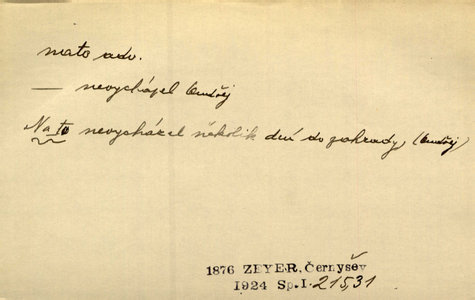 nato adv.
— nevycházel Ondřej
Na to nevycházel několik dní do zahrady, (Ondřej)
1876 ZEYER, Černyšev
1924 Sp.I. 215,31